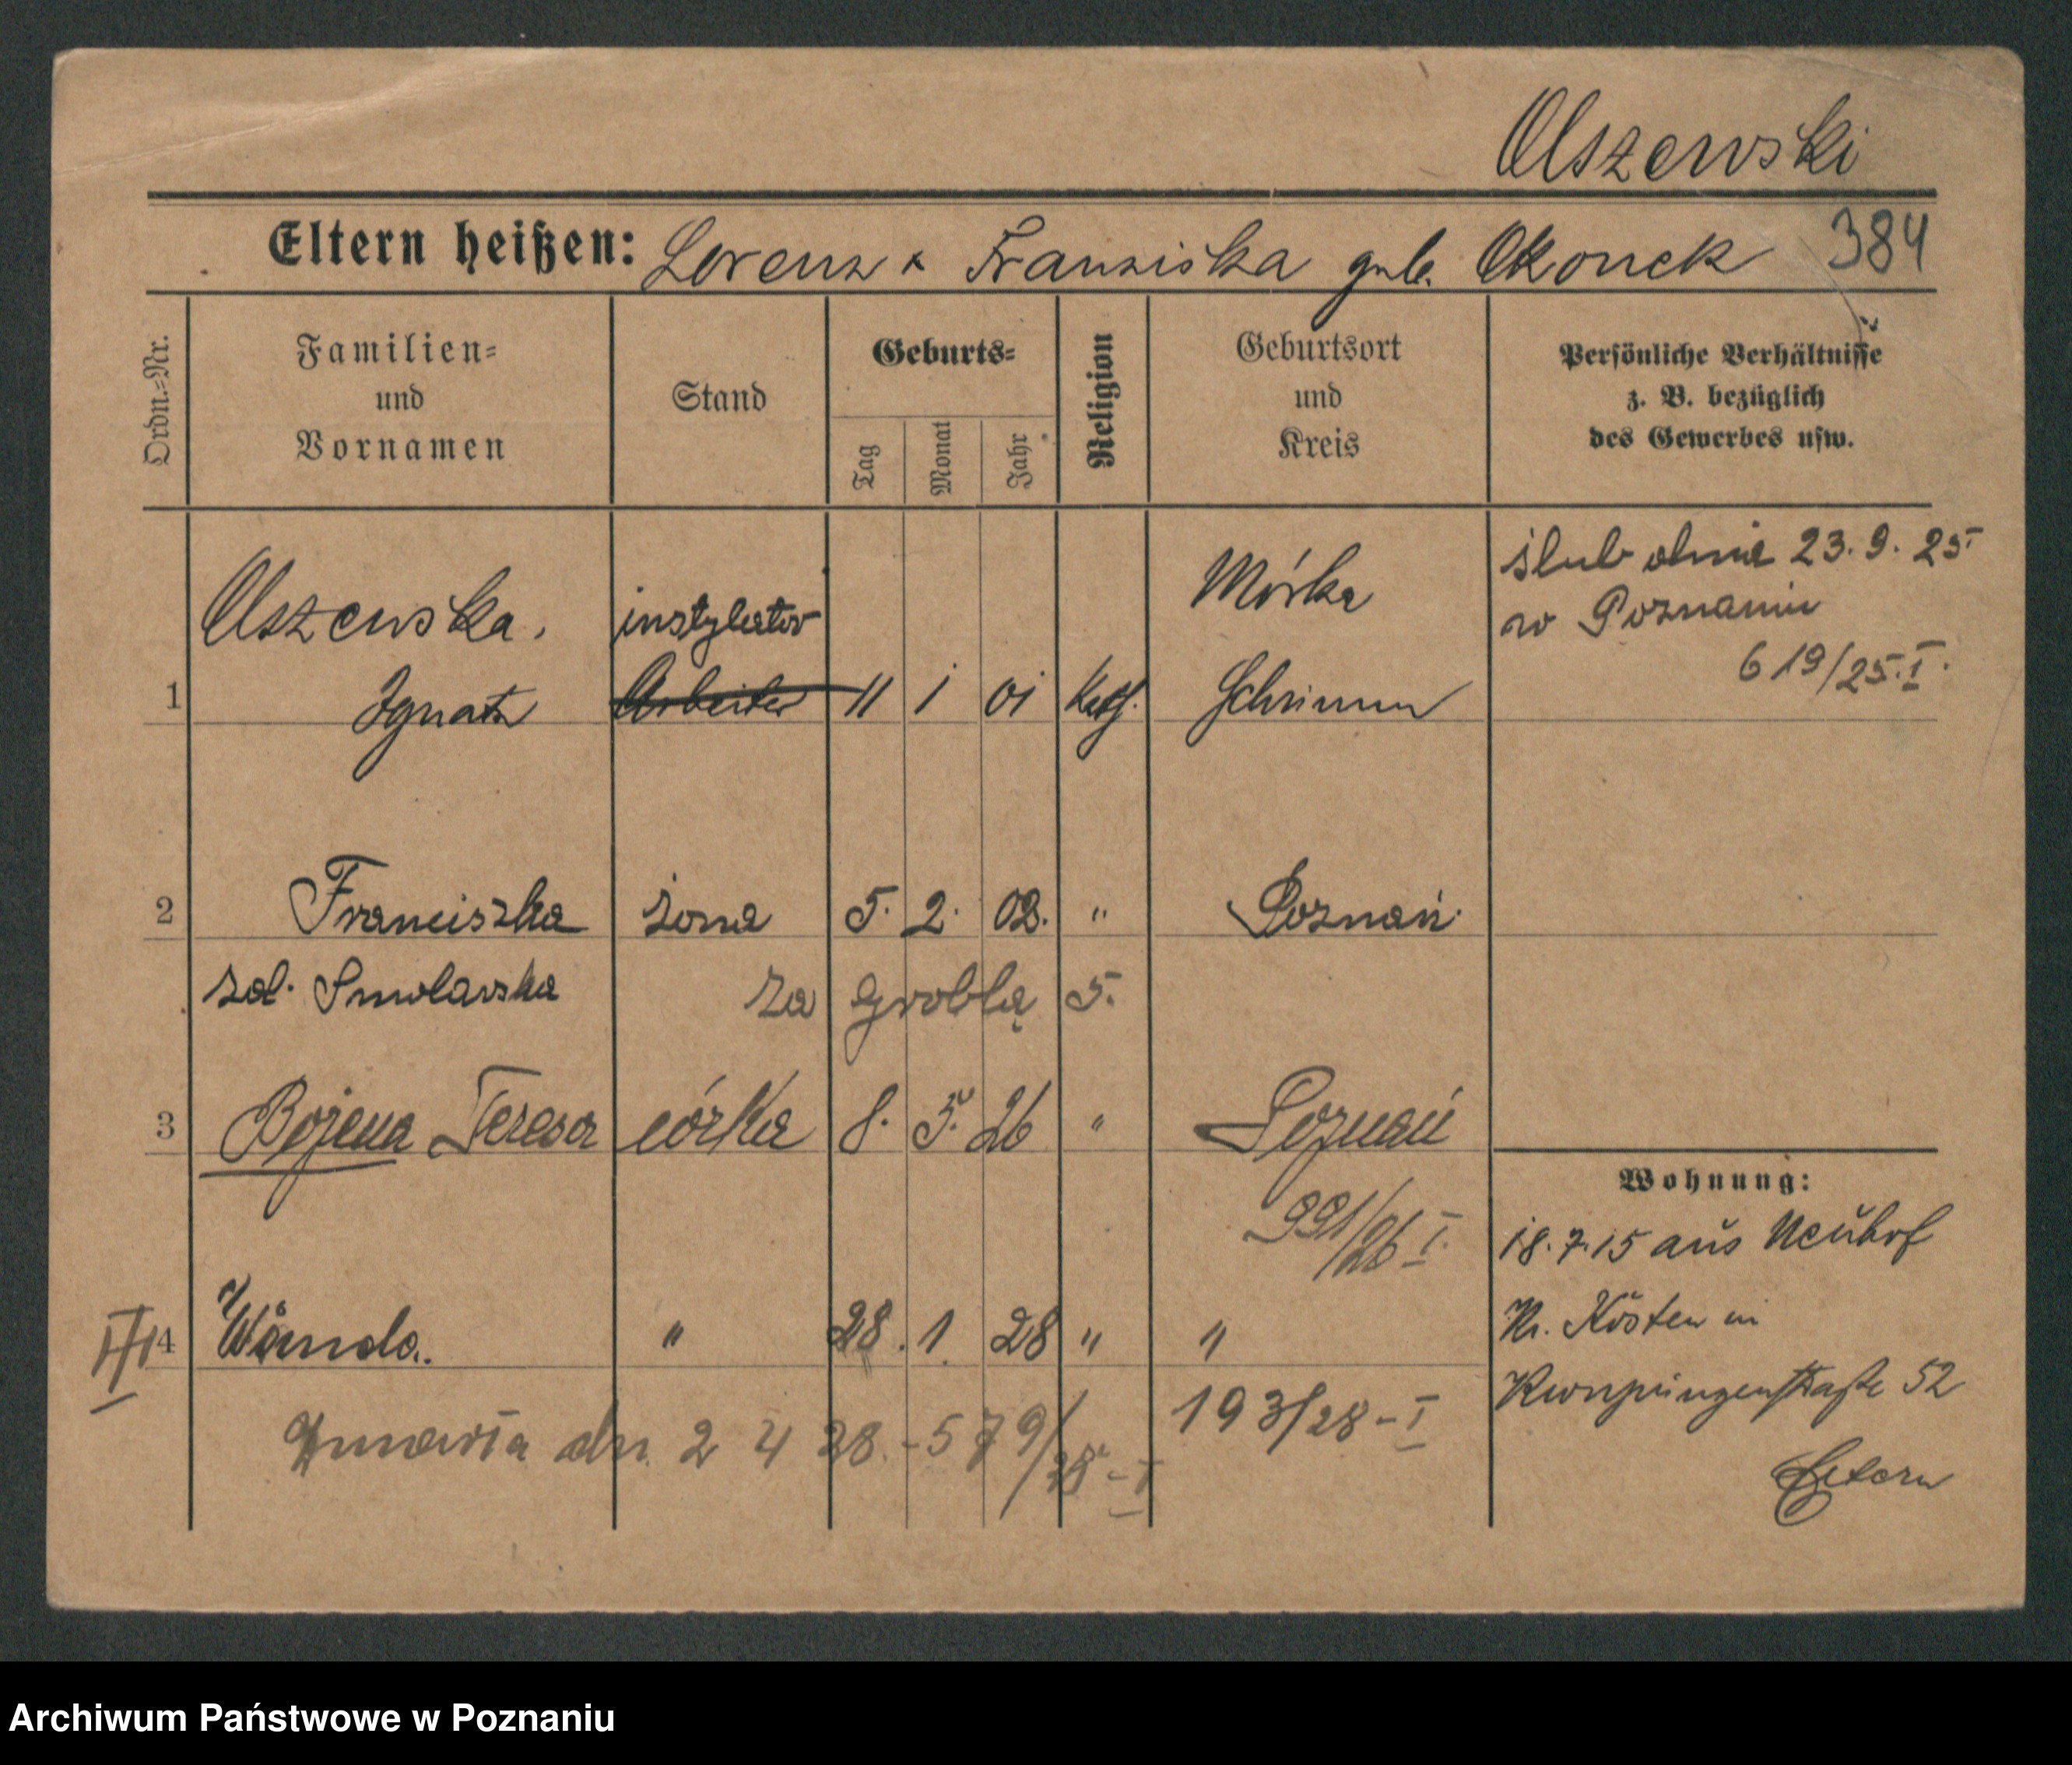 Olszewski
Eltern heißen: Lorenz & Franziska geb. Okonek 384
Ordn.-Nr.
Familien-
und
Vornamen
Stand
Geburts-
Tag
Monat
Jahr
Religion
Geburtsort
und
Kreis
Persönliche Verhältnisse
z. B. bezüglich
des Gewerbes usw.
Olszewska.
instylator
Mórka
ślub dnia 23.9.25
w Poznaniu
619/25.I.
1 Ignatz Arbeiter 11 1 01 Kath. Schrimm
2 Franciszka żona 5. 2. 02. " Poznań.
za groblą 5.
3 Bożena Teresa córka 8. 5. 26 " Poznań
991/26 I.
III 4 Wanda. " 28. 1. 28 " "
193/28-I
Zmarła dn. 2 4 28 - 579/28-I
Wohnung:
18.7.15 aus Neuhof
Kr. Kosten in
Kronprinzenstraße 52
Eltern
Archiwum Państwowe w Poznaniu